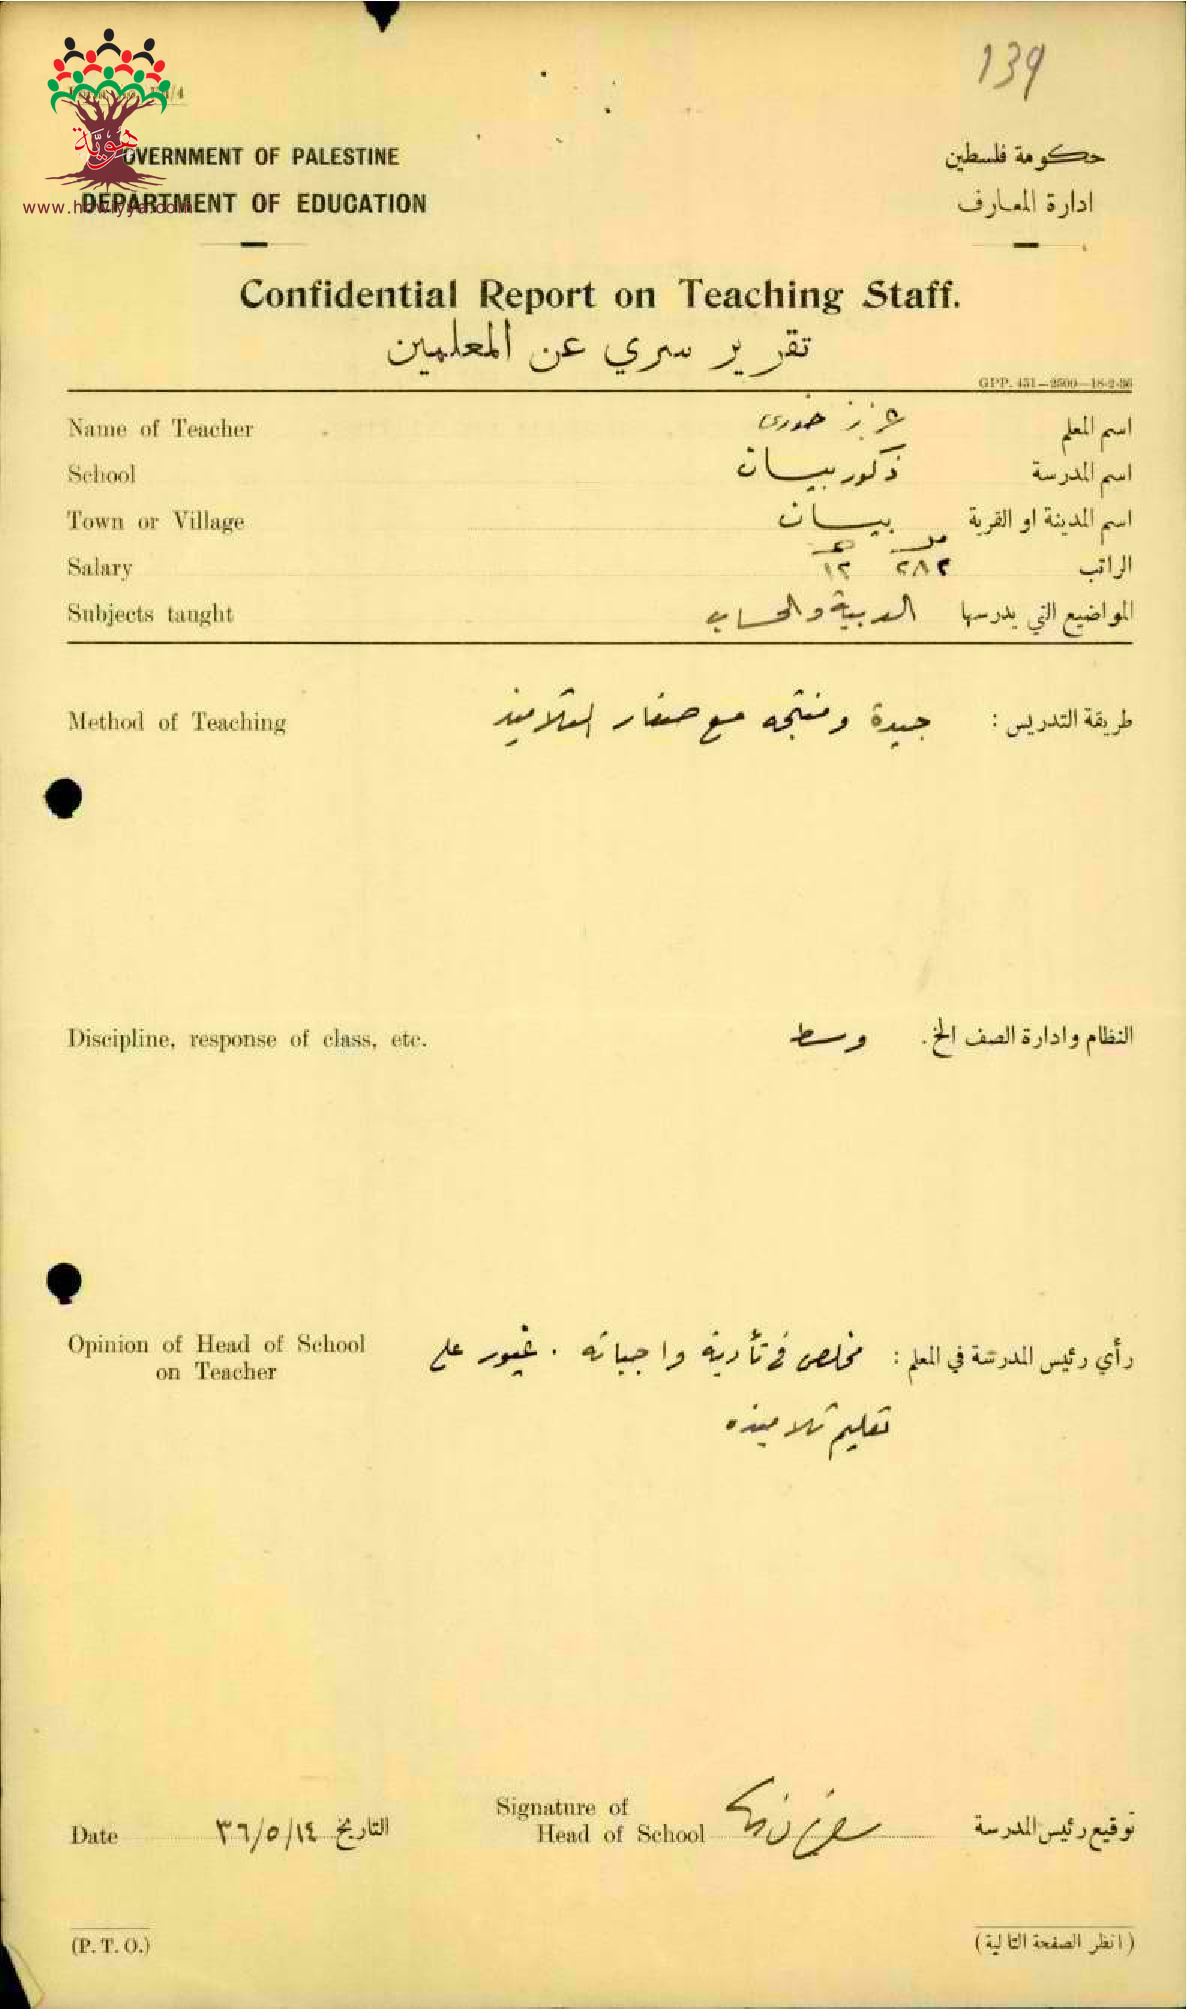 139
هويّة
www.howiyya.com
GOVERNMENT OF PALESTINE
حكومة فلسطين
DEPARTMENT OF EDUCATION
ادارة المعارف
Confidential Report on Teaching Staff.
تقرير سري عن المعلمين
GPP. 451—2500—18-2-36
Name of Teacher عزيز خوري اسم المعلم
School ذكور بيسان اسم المدرسة
Town or Village بيسان اسم المدينة او القرية
Salary ٢٨٢ ١٢ الراتب
Subjects taught العربية والحساب المواضيع التي يدرسها
Method of Teaching جيدة ومنتجه مع صغار التلاميذ طريقة التدريس :
Discipline, response of class, etc. وسط النظام وادارة الصف الخ.
Opinion of Head of School on Teacher
رأي رئيس المدرسة في المعلم : مخلص في تأدية واجباته . غيور على
تعليم تلاميذه
Date ٣٦/٥/١٤ التاريخ
Signature of Head of School توقيع رئيس المدرسة
(P. T. O.) (انظر الصفحة التالية)